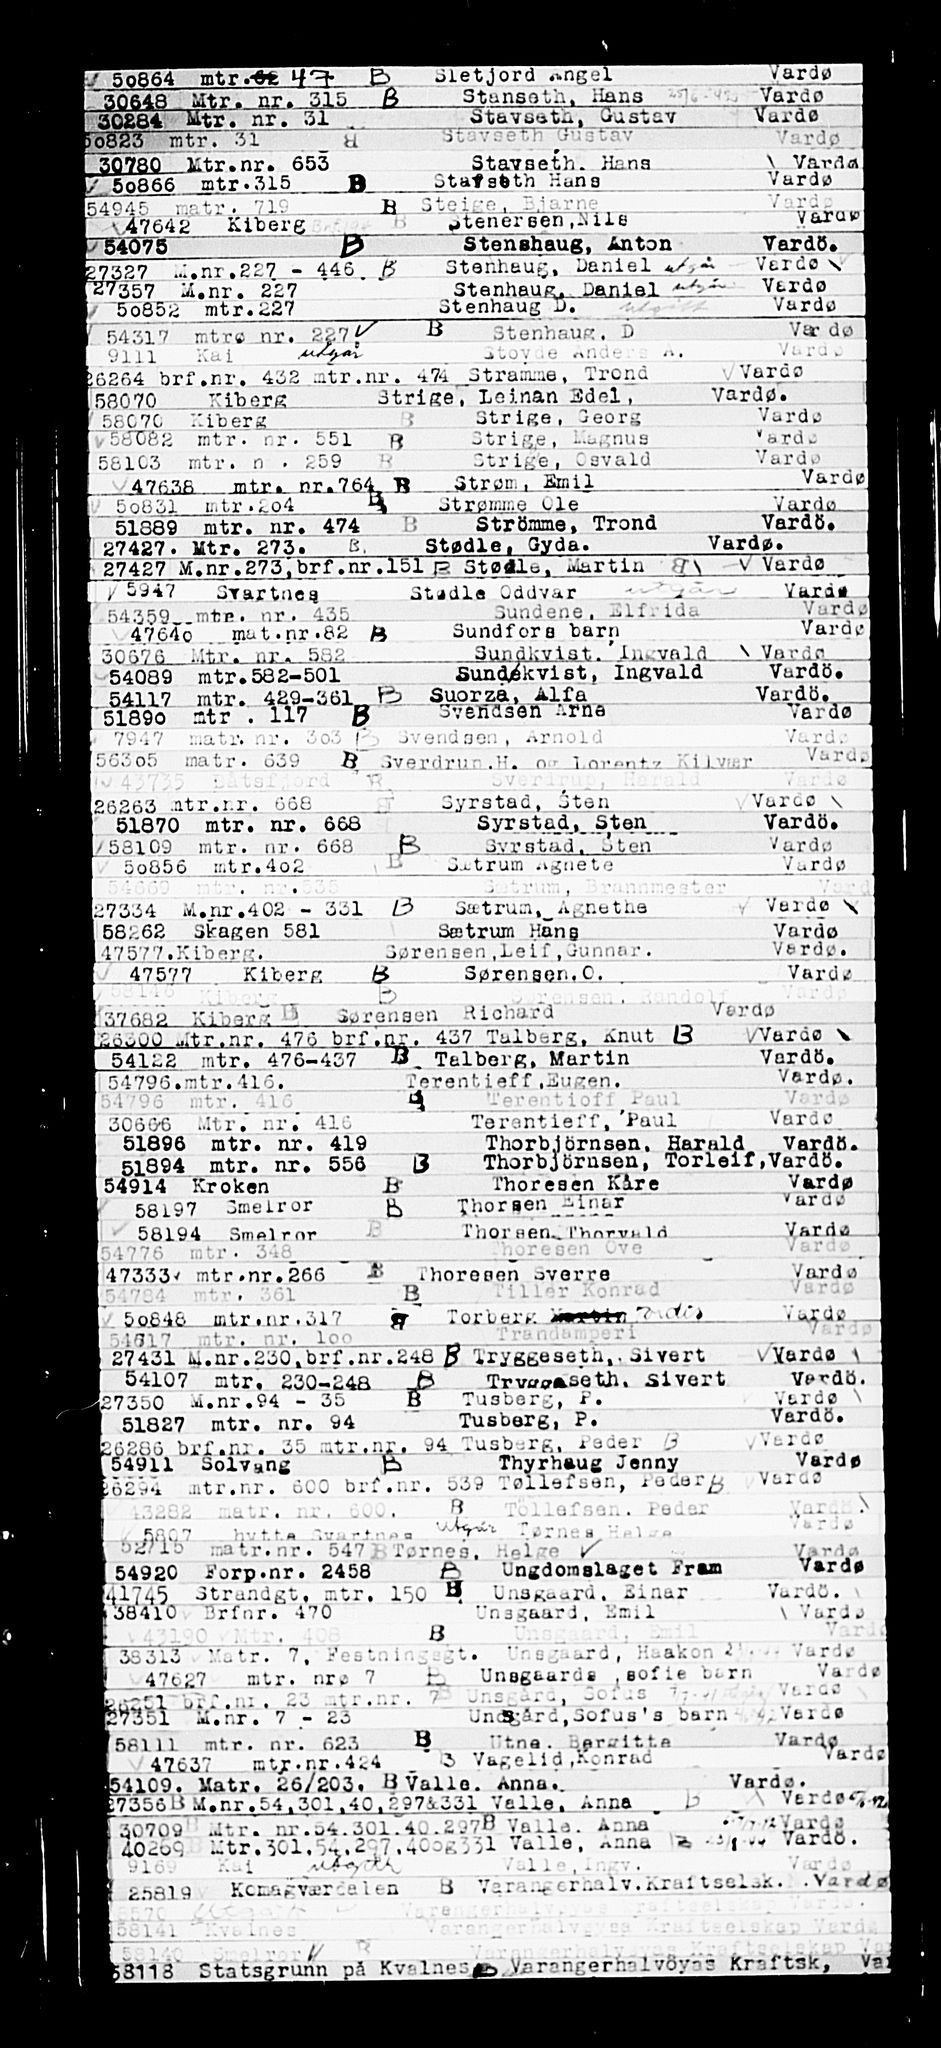 50864 mtr. 47 B Sletjord Angel Vardø
30648 Mtr. nr. 315 B Stanseth, Hans Vardø
30284 Mtr. nr. 31 Stavseth, Gustav Vardø
50823 mtr. 31 B Stavseth Gustav Vardø
30780 Mtr.nr. 653 Stavseth. Hans \ Vardø
50866 mtr.315 B Stafseth Hans Vardø
54945 matr. 719 B Steige, Bjarne Vardø
47642 Kiberg B Stenersen,Nils Vardø
54075 B Stenshaug, Anton Vardö.
27327 M.nr.227 - 446 B Stenhaug, Daniel utgår Vardø \
27357 M.nr. 227 Stenhaug, Daniel utgår Vardø
50852 mtr.227 Stenhaug D. Vardø
54317 mtrø nr. 227 B Stenhaug, D Vardø
9111 Kai utgår Stovde Anders A. Vardø
26264 brf.nr. 432 mtr.nr. 474 Stramme, Trond Vardø
58070 Kiberg Strige, Leinan Edel, Vardø.
58070 Kiberg B Strige, Georg Vardø
58082 mtr. nr. 551 B Strige, Magnus Vardø
58103 mtr. n . 259 B Strige, Osvald Vardø
47638 mtr. nr.764 B Strøm, Emil Vardø
50831 mtr.204 B Strømme Ole Vardø
51889 mtr. nr. 474 B Strömme, Trond Vardö.
27427. Mtr. 273. B. Stødle, Gyda. Vardø.
27427 M.nr.273,brf.nr.151 B Stødle, Martin B\ Vardø
5947 Svartnes Stødle Oddvar utgår Vardø
54359 mtr. nr. 435 Sundene, Elfrida Vardø
47640 mat.nr.82 B Sundfors barn Vardø
30676 Mtr. nr. 582 Sundkvist. Ingvald \ Vardø
54089 mtr.582-501 Sundkvist, Ingvald Vardö.
54117 mtr. 429-361 B Suorza, Alfa Vardö.
51890 mtr . 117 B Svendsen Arne Vardø
7947 matr. nr. 303 B Svendsen, Arnold Vardø
56305 matr. 639 B Sverdrup.H. og Lorentz Kilvær Vardø
43735 Båtsfjord B Sverdrup, Harald Vardø
26263 mtr.nr. 668 B Syrstad, Sten Vardø \
51870 mtr. nr. 668 Syrstad, Sten Vardö.
58109 mtr. nr. 668 B Syrstad, Sten Vardø
50856 mtr.402 B Sætrum Agnete Vardø
54669 mtr. nr.535 Sætrum, Brannmester Vard
27334 M.nr.402 - 331 B Sætrum, Agnethe Vardø \
58262 Skagen 581 Sætrum Hans Vardø
47577.Kiberg. Sørensen,Leif,Gunnar. Vardø.
47577 Kiberg B Sørensen.O. Vardø
58146 Kiberg B Sørensen, Randolf Vardø
37682 Kiberg B Sørensen Richard Vardø
26300 Mtr.nr. 476 brf.nr. 437 Talberg, Knut B Vardø \
54122 mtr. 476-437 B Talberg, Martin Vardö.
54796.mtr.416. Terentieff,Eugen. Vardø.
54796 mtr. 416 B Terentioff Paul Vardø
30666 Mtr. nr. 416 Terentieff, Paul Vardø
51896 mtr. nr. 419 Thorbjörnsen, Harald Vardö.
51894 mtr. nr. 556 B Thorbjörnsen, Torleif,Vardö.
54914 Kroken B Thoresen Kåre Vardø
58197 Smelror B Thorsen Einar Vardø
58194 Smelror B Thorsen Thorvald Vardø
54776 mtr. 348 Thoresen Ove Vardø
47333 mtr.nr.266 B Thoresen Sverre Vardø
54784 mtr. 361 B Tiller Konrad Vardø
50848 mtr.nr.317 B Torberg Vardø
54617 mtr. nr. 100 Trandamperi Vardø
27431 M.nr.230,brf.nr.248 B Tryggeseth, Sivert Vardø \
54107 mtr. 230-248 B Tryggeseth. Sivert Vardö.
27350 M.nr.94 - 35 B Tusberg, P. Vardø \
51827 mtr. nr. 94 Tusberg, P. Vardö.
26286 brf.nr. 35 mtr.nr. 94 Tusberg, Peder B Vardø
54911 Solvang B Thyrhaug Jenny Vardø
26294 mtr.nr. 600 brf.nr. 539 Tøllefsen, Peder B Vardø
43282 matr. nr. 600. B Töllefsen. Peder Vardö.\
5807 hytte Svartnes utgår Tørnes Helge Vardø
52715 matr.nr. 547 B Tørnes, Helge Vardø
54920 Forp.nr. 2458 B Ungdomslaget Fram Vardø
41745 Strandgt, mtr. 150 B Unsgaard, Einar Vardö. \
38410 Brfnr. 470 Unsgaard, Emil \ Vardø
43190 Mtr. 408 B Unsgaard, Emil Vardø
38313 Matr. 7, Festningsgt. Unsgaard, Haakon Vardø
47627 mtr. nrø 7 B Unsgaards ,sofie barn Vardø
26251 brf.nr. 23 mtr.nr. 7 B Unsgård, Sofus Vardø \
27351 M.nr. 7 - 23 Undsgård,Sofus's barn Vardø
58111 mtr. nr. 623 B Utne, Bergitte Vardø
47637 mtr.nr.424 B Vagelid,Konrad Vardø
54109. Matr. 26/203. B Valle. Anna. Vardø.
27356 B M.nr.54,301,40,297&331 Valle, Anna B Vardø
30709 B Mtr. nr.54.301.40.297 B Valle. Anna Vardø
40269 B Mtr.301,54,297,40og331 Valle, Anna B Vardö.
9169 Kai utgått Valle,Ingv. Vardø
25819 Komagværdalen B Varangerhalv.Kraftselsk. Vardø
8570 Varangerhalvøyas Kraftselskap Vardø.
58141 Kvalnes Varangerhalvøyas Kraftselskap Vardø
58140 Smelror B Varangerhalvøyas Kraftselskap Va
58118 Statsgrunn på Kvalnes B Varangerhalvöyas Kraftsk, Va